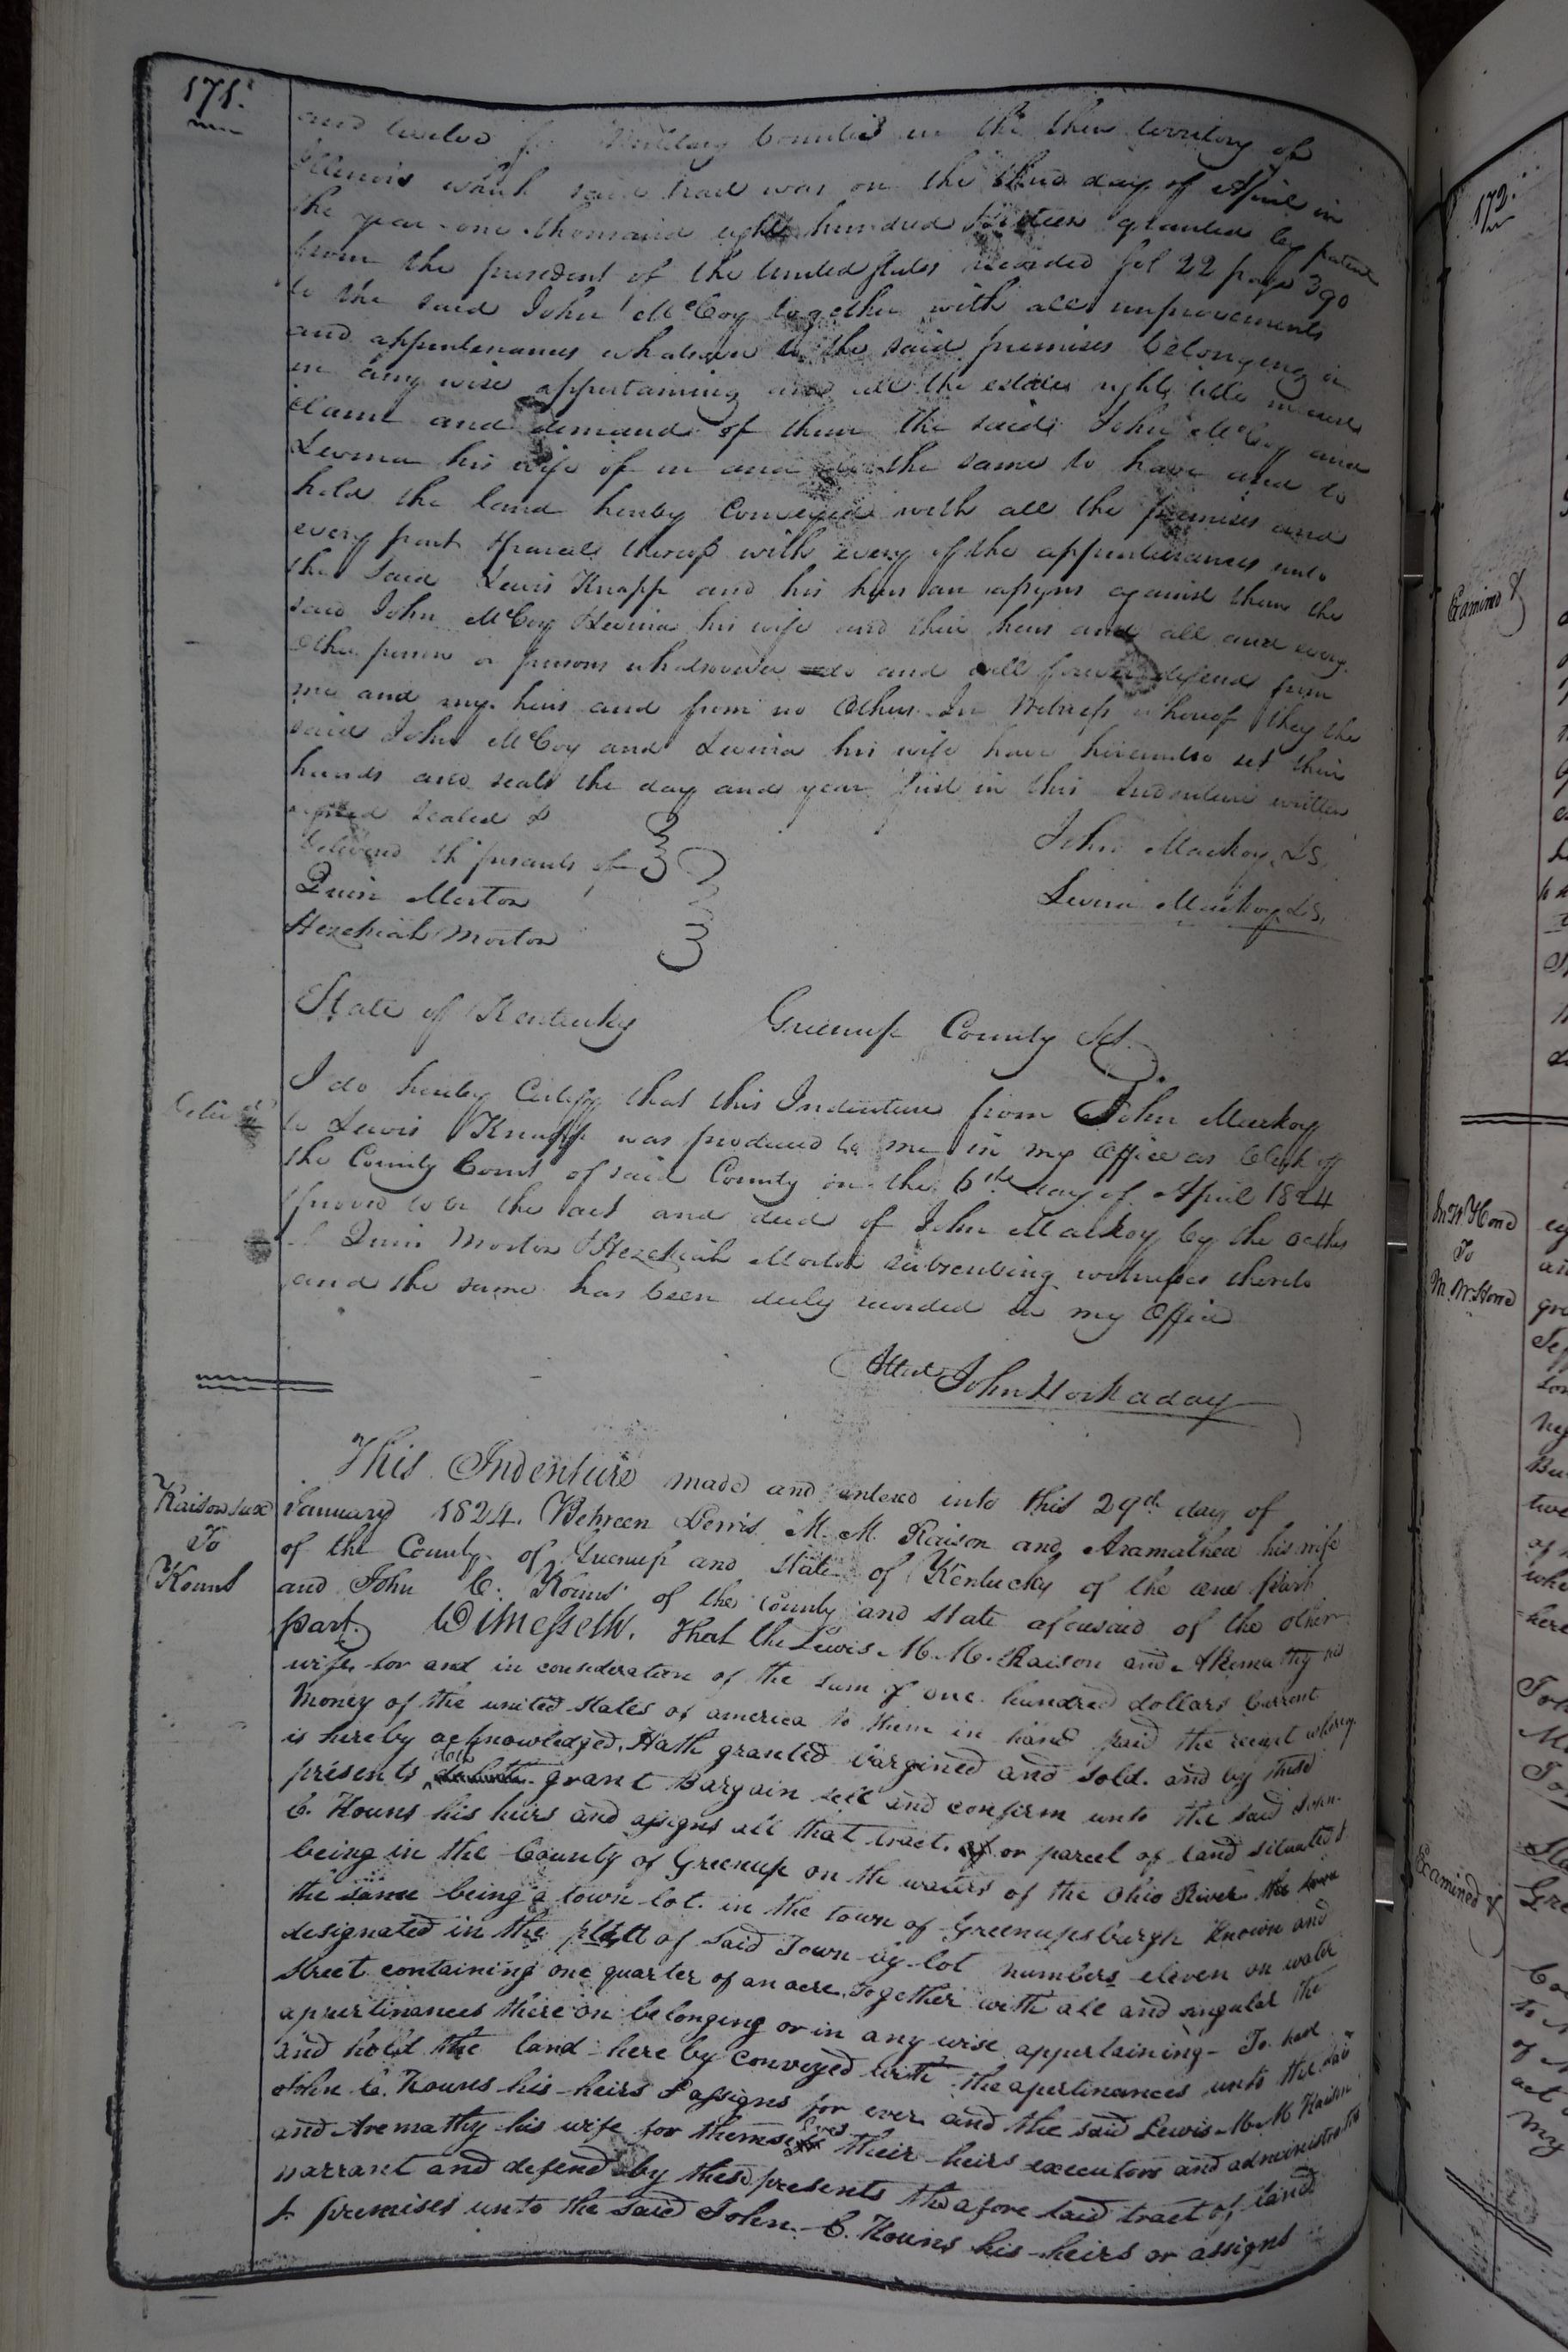 171.
and twelve for Military bounties in the then territory of
Illinois which said tract was on the third day of April in
the year one thousand eight hundred granted by patent
from the president of the United States recorded fol 22 page 390
to the said John McCoy together with all improvements
and appertenances whatsoever to the said premises belonging or
in any wise appertaining and all the estates right title interest
claim and demand of them the said John McCoy and
Levina his wife of in and to the same to have and to
hold the land hereby Conveyed with all the premises and
every part & parcel thereof with every of the appurtenances unto
the said Lewis Knapp and his heirs an assigns against them the
said John McCoy & Levina his wife and their heirs and all and every
other person or persons whatsoever do and will forever defend from
me and my heirs and from no others In Witness whereof they the
said John McCoy and Levina his wife have hereunto set their
hands and seals the day and year first in this Indenture written
signed sealed &
delivered th presents of
John Mackoy LS.
Quin Morton
Levina Mackoy LS.
Hezekiah Morton
State of Kentucky Greenup County Sct.
I do hereby Certify that this Indenture from John Mackoy
to Lewis Knapp was produced to me in my Office as Clerk of
the County Court of said County on the 6th day of April 1824
& proved to be the act and deed of John Mackoy by the oathes
of Quin Morton & Hezekiah Morton subscribing witnesses thereto
and the same has been duly recorded in my Office
Attest John Hockaday
This Indenture made and entered into this 29th day of
Raison &ux
To
Kouns
January 1824. Between Lewis M. M. Raison and Aramathea his wife
of the County of Greenup and State of Kentucky of the one part
and John C. Kouns of the county and state aforesaid of the other
part. Witnesseth. That the Lewis M. M. Raison and Aremathy his
wife for and in consideration of the sum of one hundred dollars Current
Money of the united States of america to them in hand paid the receipt whereof
is hereby acknowledged, Hath granted bargined and sold. and by these
presents doth grant Bargain sell and confirm unto the said John
C. Kouns his heirs and assigns all that tract or parcel of land situated &
being in the County of Greenup on the waters of the Ohio River the town
the same being a town lot. in the town of Greenupsburgh Known and
designated in the platt of said Town by lot numbers eleven on water
Street containing one quarter of an acre, Together with all and singular the
apurtinances there on belonging or in any wise appertaining - To have
and hold the land here by conveyed with the apertinances unto the said
John C. Kouns his heirs & assigns for ever and the said Lewis M. M Raison
and Aremathy his wife for themselves their heirs executors and administrators
warrant and defend by these presents the afore said tract of land
& premises unto the said John C. Kouns his heirs or assigns
172.
Examined &
M. W. Hond
Examined &